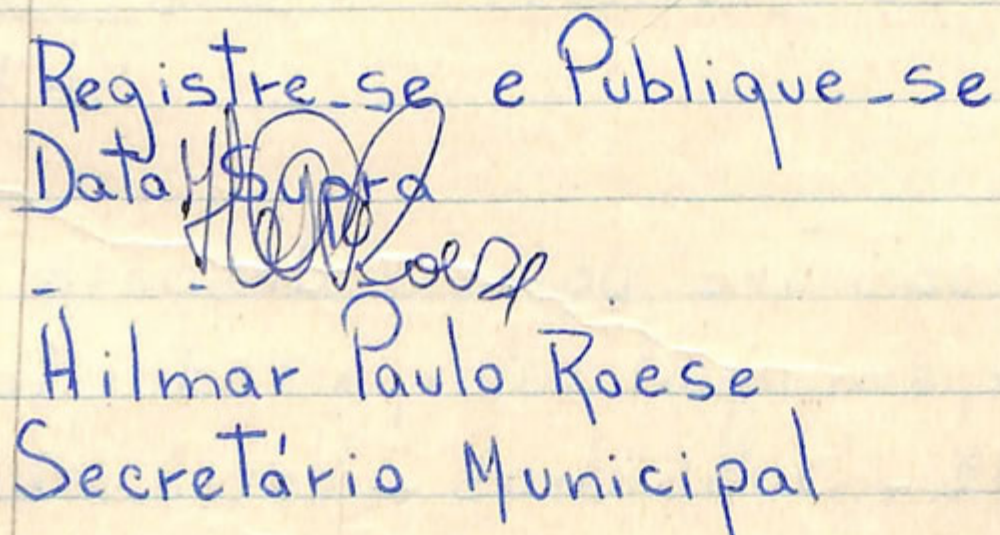 Registre-se e Publique-se
Data Supra
Hilmar Paulo Roese
Secretário Municipal